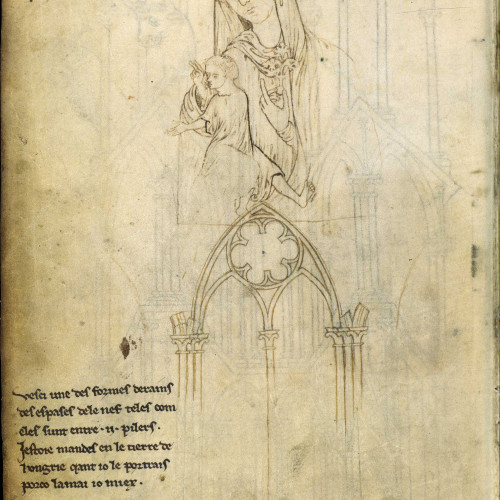 vesci une des formes derains
des espases dele nef teles com
eles sunt entre .ii. pilers.
Jestoie mandes en le tierre de
hongrie qant io le portrais
porco lamai io miex .